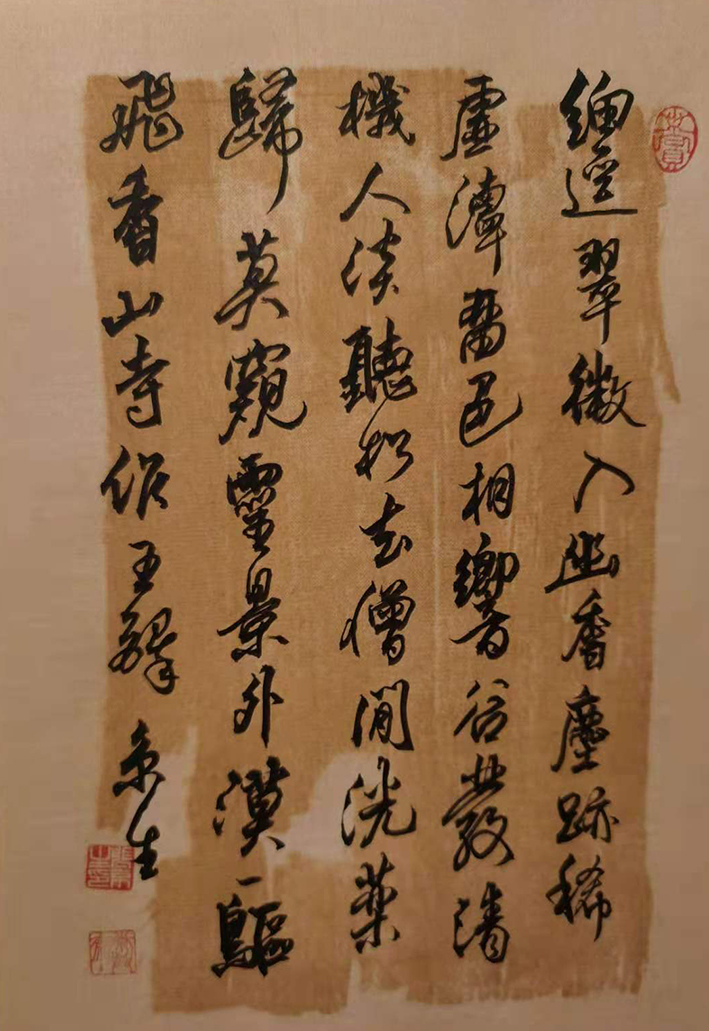 緬逕翠微入幽香塵跡稀
虛潭留色相響谷發清
機人淡聽松去僧閒洗藥
歸莫窺靈景外漠一鷗
飛香山寺作王鐸 京生